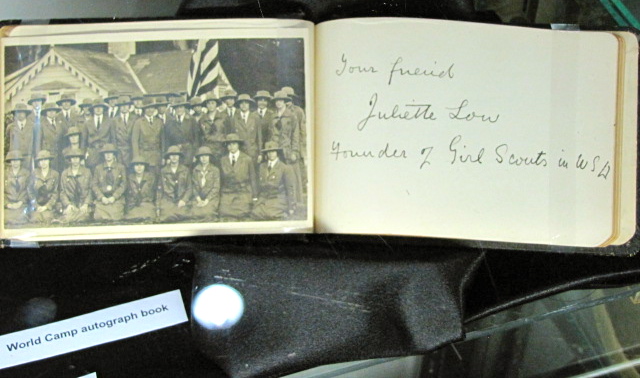 Your friend
Juliette Low
Founder of Girl Scouts in USA
World Camp autograph book